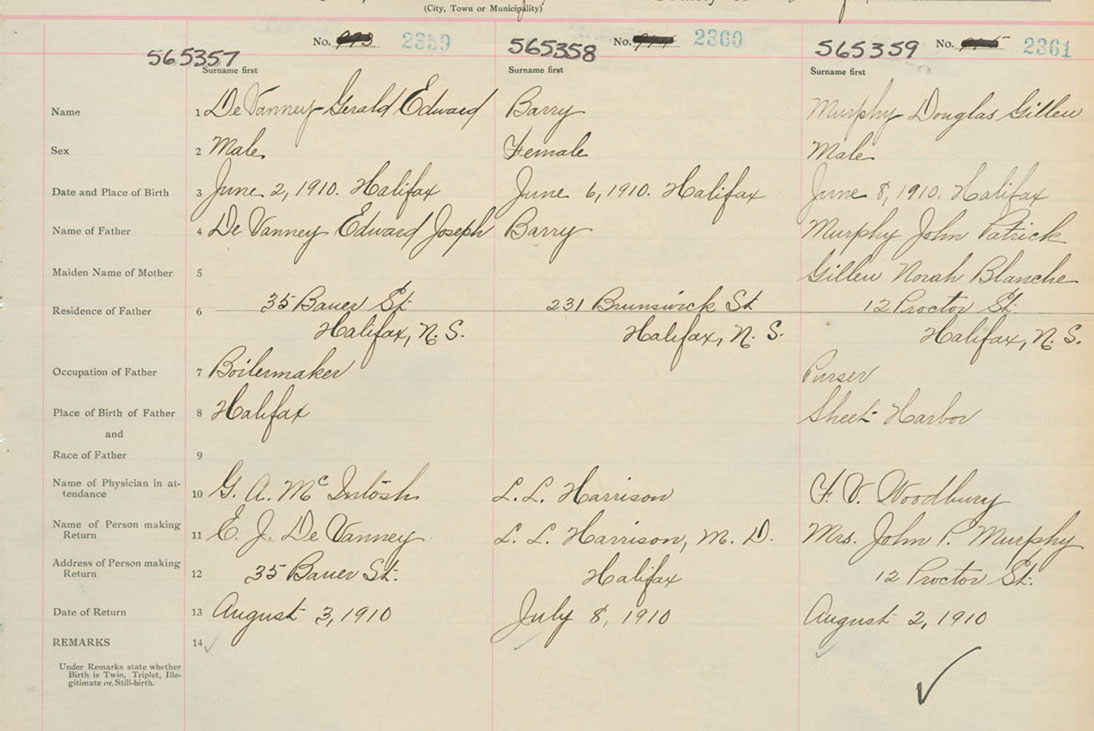 (City, Town or Municipality)
565357 No. 2359 565358 No. 2360 565359 No. 2361
Surname first Surname first Surname first
Name 1 De Vanney Gerald Edward Barry Murphy Douglas Gillen
Sex 2 Male Female Male
Date and Place of Birth 3 June 2, 1910. Halifax June 6, 1910. Halifax June 8, 1910. Halifax
Name of Father 4 De Vanney Edward Joseph Barry Murphy John Patrick
Maiden Name of Mother 5 Gillen Norah Blanche
Residence of Father 6 35 Bauer St. 231 Brunswick St 12 Proctor St.
Halifax, N. S. Halifax, N. S. Halifax, N. S.
Occupation of Father 7 Boilermaker Purser
Place of Birth of Father 8 Halifax Sheet Harbor
and
Race of Father 9
Name of Physician in at-
tendance 10 G. A. McIntosh L. L. Harrison F. V. Woodbury
Name of Person making
Return 11 E. J. De Vanney L. L. Harrison, M. D. Mrs. John P. Murphy
Address of Person making
Return 12 35 Bauer St. Halifax 12 Proctor St.
Date of Return 13 August 3, 1910 July 8, 1910 August 2, 1910
REMARKS 14
Under Remarks state whether
Birth is Twin, Triplet, Ille-
gitimate or Still-birth.